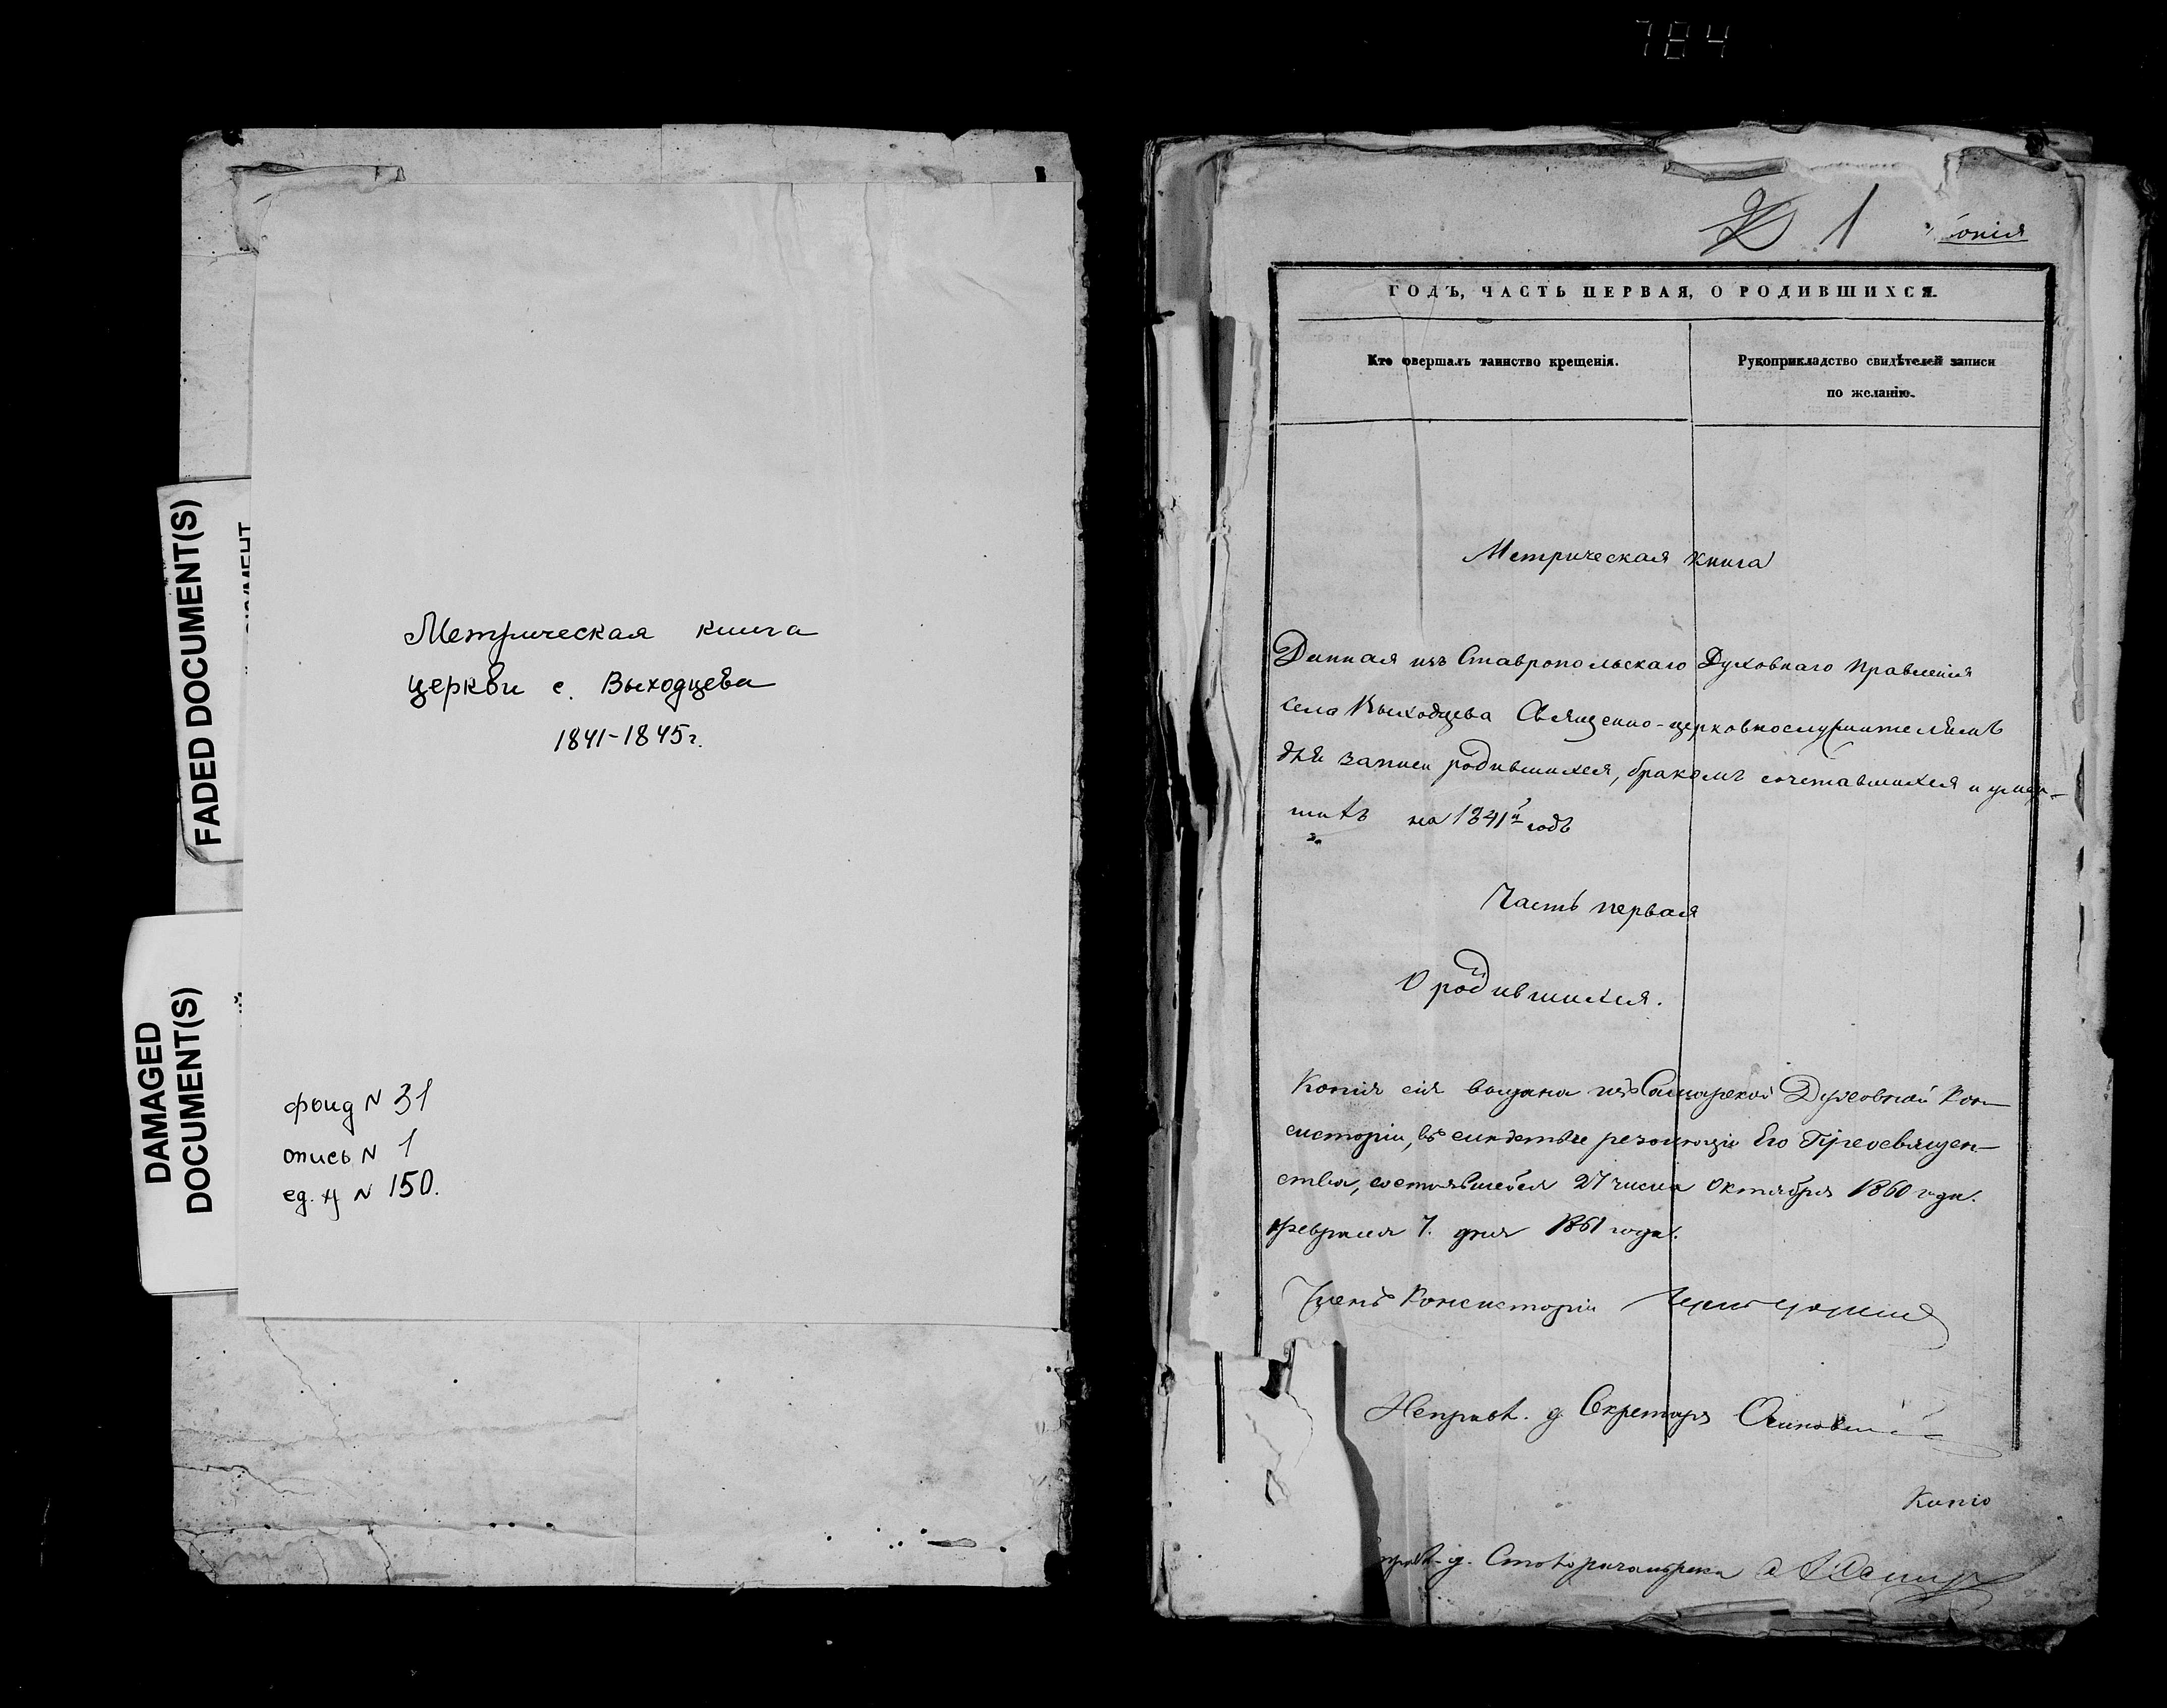 784
FADED DOCUMENT(S)
DAMAGED
DOCUMENT(S)
Метрическая книга
церкви с. Выходцева
1841-1845г.
фонд N 31
опись N 1
ед. хр N 150.
1
опія
ГОДЪ, ЧАСТЬ ПЕРВАЯ, О РОДИВШИХСЯ.
Кто овершалъ таинство крещенія.
Рукоприкладство свидѣтелей записи
по желанію.
Метрическая книга
Данная изъ Ставропольскаго Духовнаго Правленія
села Выходцева Священно-церковнослужителямъ
для записи родившихся, бракомъ сочетавшихся и умер-
шихъ на 1841й годъ
Часть первая
О родившихся.
Копія сія выдана изъ Самарской Духовной Кон-
систоріи, въ слѣдствіе резолюціи Его Преосвящен-
ства, состоявшейся 27 числа Октября 1860 года.
Февраля 7. дня 1861 года.
Членъ Консисторіи
Исправ. д. Секретаря
Копію
д. Столоначальника